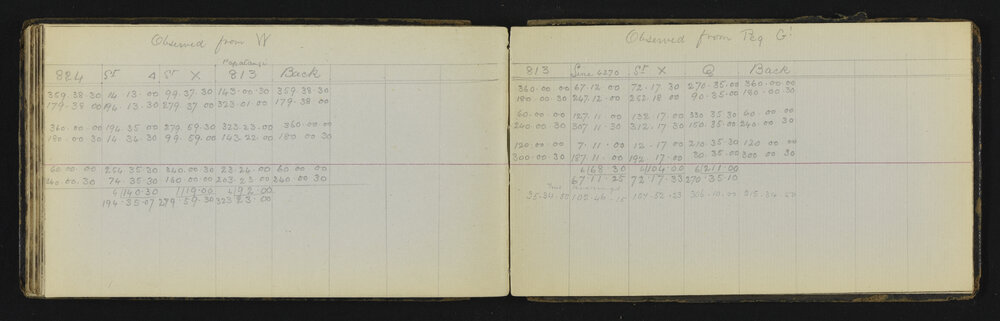 Observed from W
Papatangi
884 St 4 St X 813 Back
359.38.30 14.13.00 99.37.30 143.00.30 359.38.30
179.38.00 194.13.30 279.37.00 323.01.00 179.38.00
360.00.00 194.35.00 279.59.30 323.23.00 360.00.00
180.00.30 14.34.30 99.59.00 143.22.00 180.00.30
60.00.00 254.35.30 340.00.30 23.24.00 60.00.00
240.00.30 74.35.30 160.00.00 203.23.00 240.00.30
4)140.30 1119.00 4)92.00
194.35.07 279.59.30 323.23.00
Observed from Peg G'
813 Line 4270 St X Q Back
360.00.00 67.12.00 72.17.30 270.35.00 360.00.00
180.00.30 247.12.00 252.18.00 90.35.00 180.00.30
60.00.00 127.11.00 132.17.00 330.35.30 60.00.00
240.00.30 307.11.30 312.17.30 150.35.00 240.00.30
120.00.00 7.11.00 12.17.00 210.35.30 120.00.00
300.00.30 187.11.00 192.17.00 30.35.00 300.00.30
6)68.30 6)104.00 6)211.00
67.11.25 72.17.33 270.35.10
35.34.50 102.46.15 107.52.23 306.10.00 215.34.50